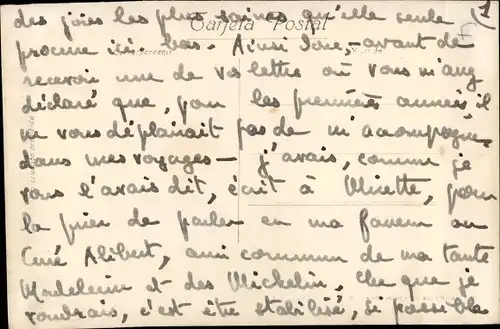 des joies les plus saines qu'elle seule
Tarjeta Postal
procure ici bas. Ainsi donc, avant de
recevoir une de vos lettre où vous m'avez
déclaré que, pour les premières années, il
ne vous déplairait pas de m'accompagner
dans mes voyages — j'avais, comme je
vous l'avais dit, écrit à Minette, pour
la prier de parler en ma faveur au
Curé Alibert, ami commun de ma tante
Madeleine et des Michelin, que je
voudrais, c'est être stabilisé, si possible